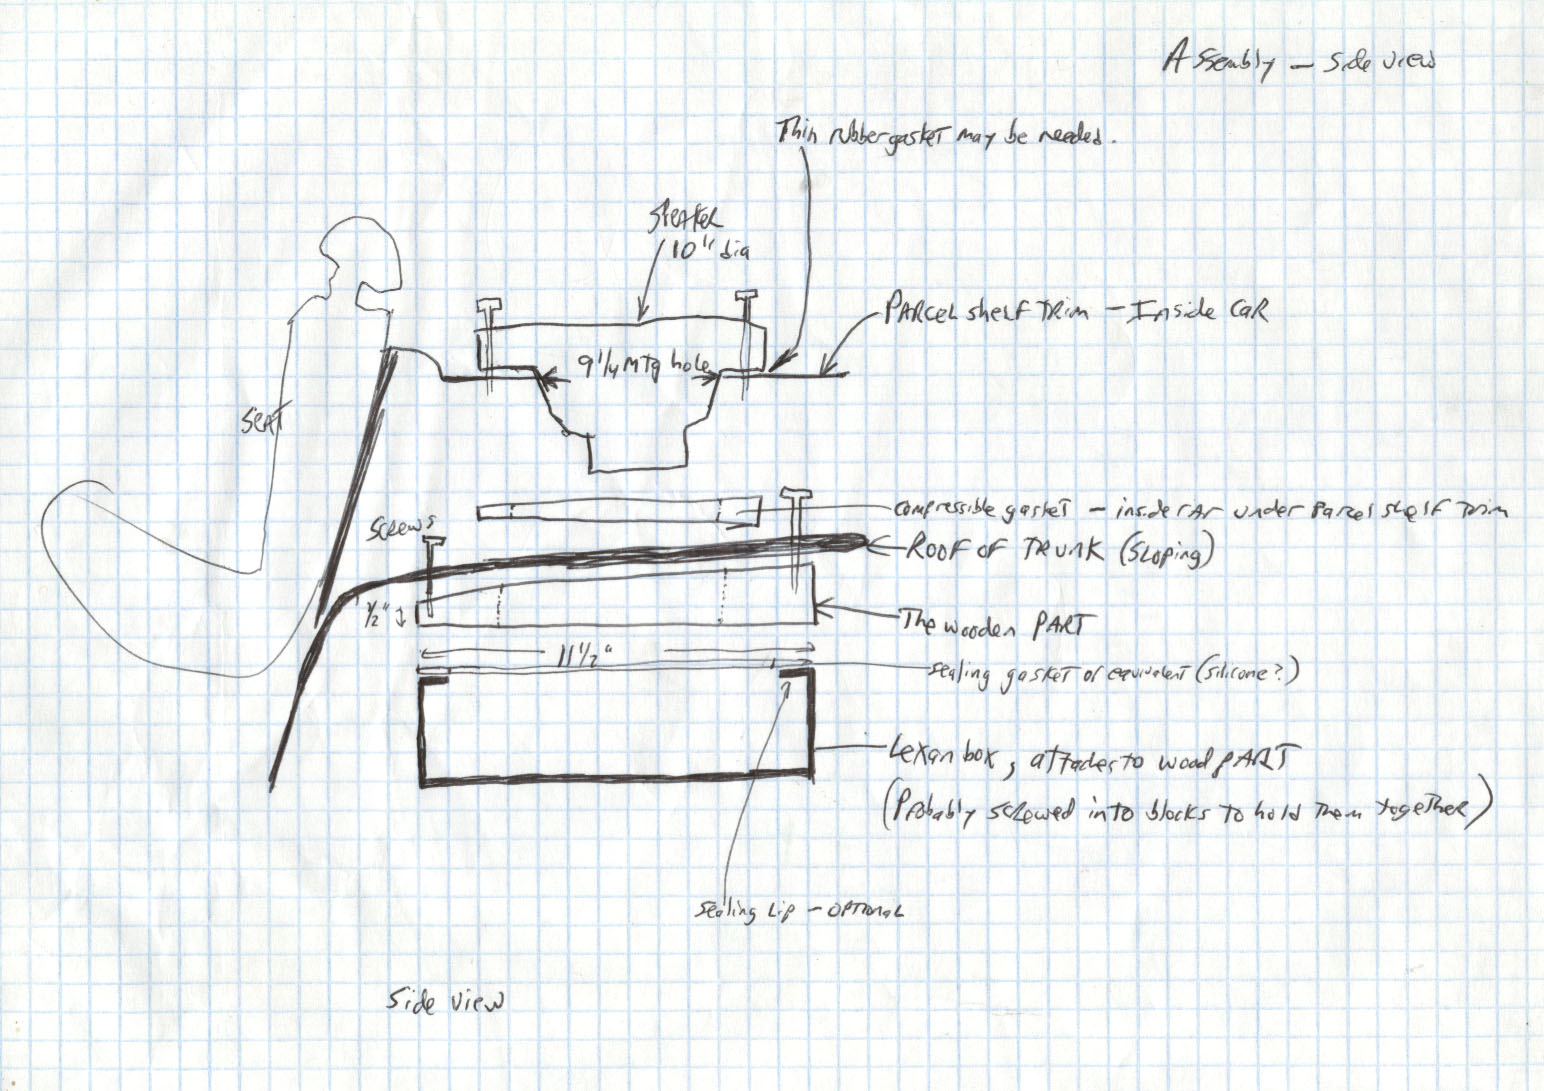 Assembly - side view
Thin rubber gasket may be needed.
SPEAKER
10" dia
PARCEL shelf TRIM - Inside CAR
9 1/4 MTg hole
SEAT
compressible gasket - inside car under parcel shelf trim
SCREWS
ROOF OF TRUNK (SLOPING)
1/2"
The wooden PART
11 1/2"
sealing gasket or equivalent (silicone?)
Lexan box, attaches to wood PART
(Probably screwed into blocks to hold them together)
sealing Lip - OPTIONAL
Side view